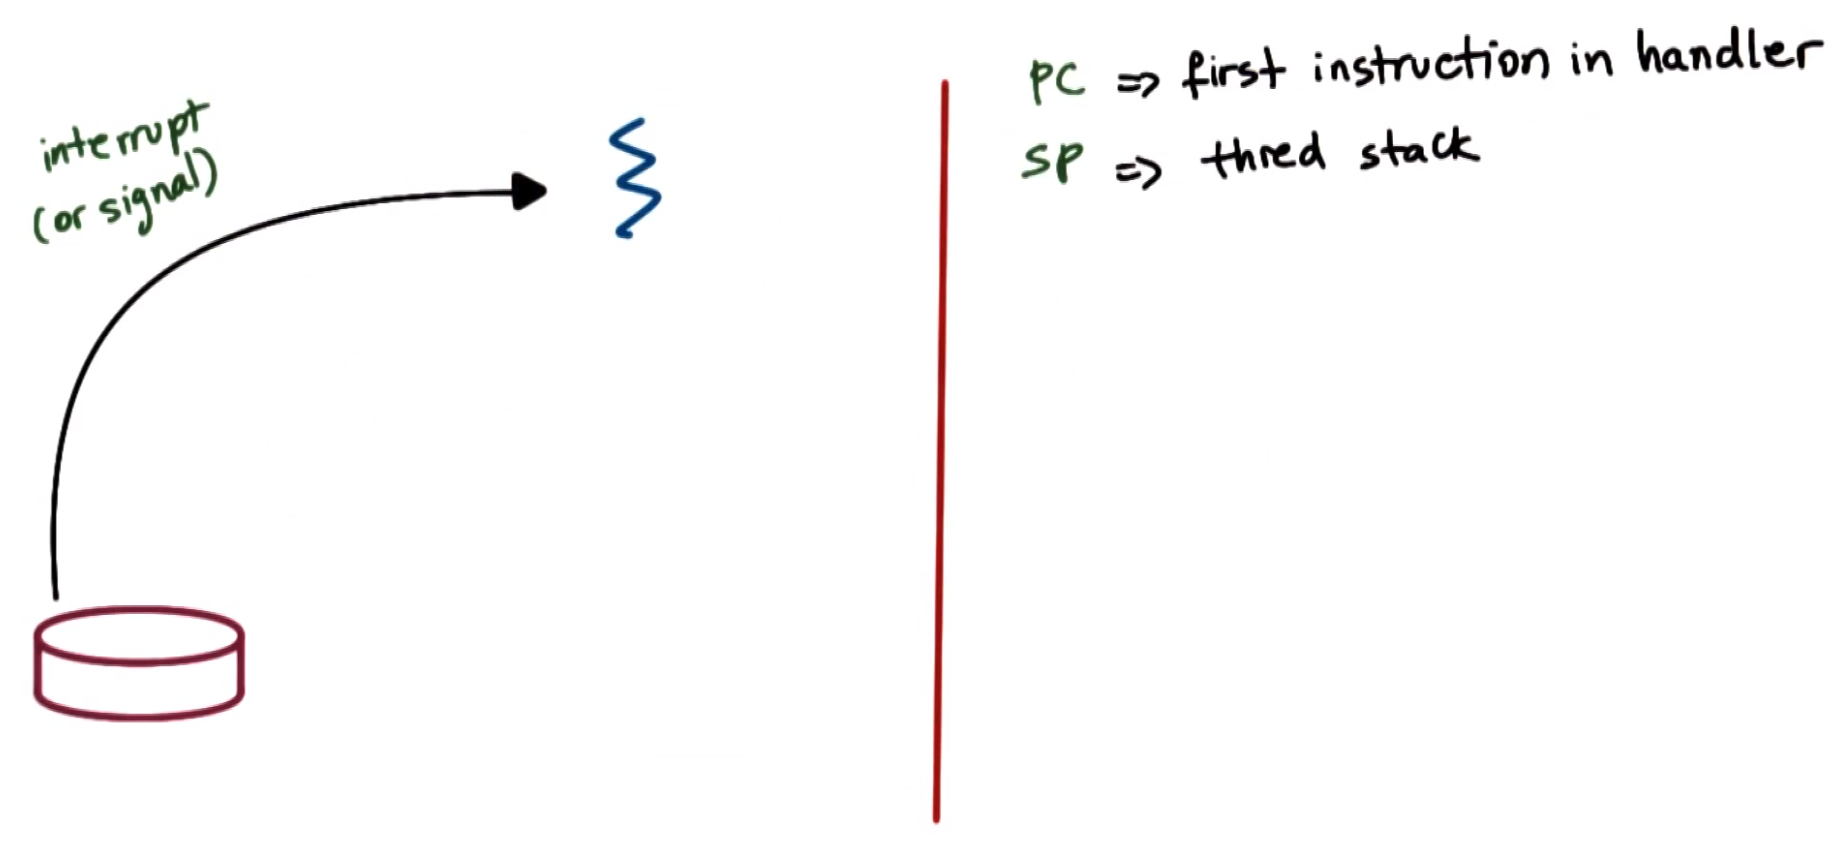 interrupt
(or signal)
PC => first instruction in handler
SP => thred stack